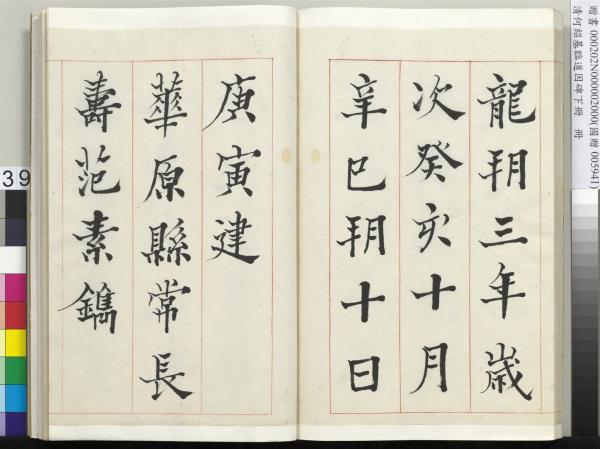 龍朔三年歲
次癸亥十月
辛巳朔十日
庚寅建
華原縣常長
壽范素鐫
贈書 000202N0000002000(國贈 005941)
清何紹基臨道因碑下冊 冊
39